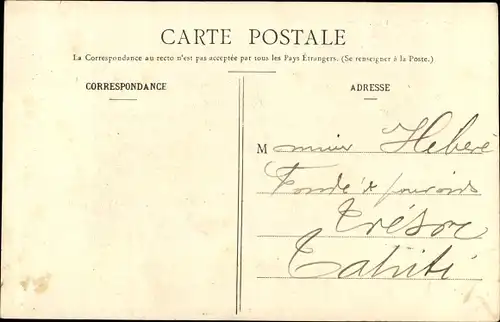 CARTE POSTALE
La Correspondance au recto n'est pas acceptée par tous les Pays Étrangers. (Se renseigner à la Poste.)
CORRESPONDANCE
ADRESSE
Monsieur Hebéré
Fondé de pouvoirs
Trésor
Tahiti